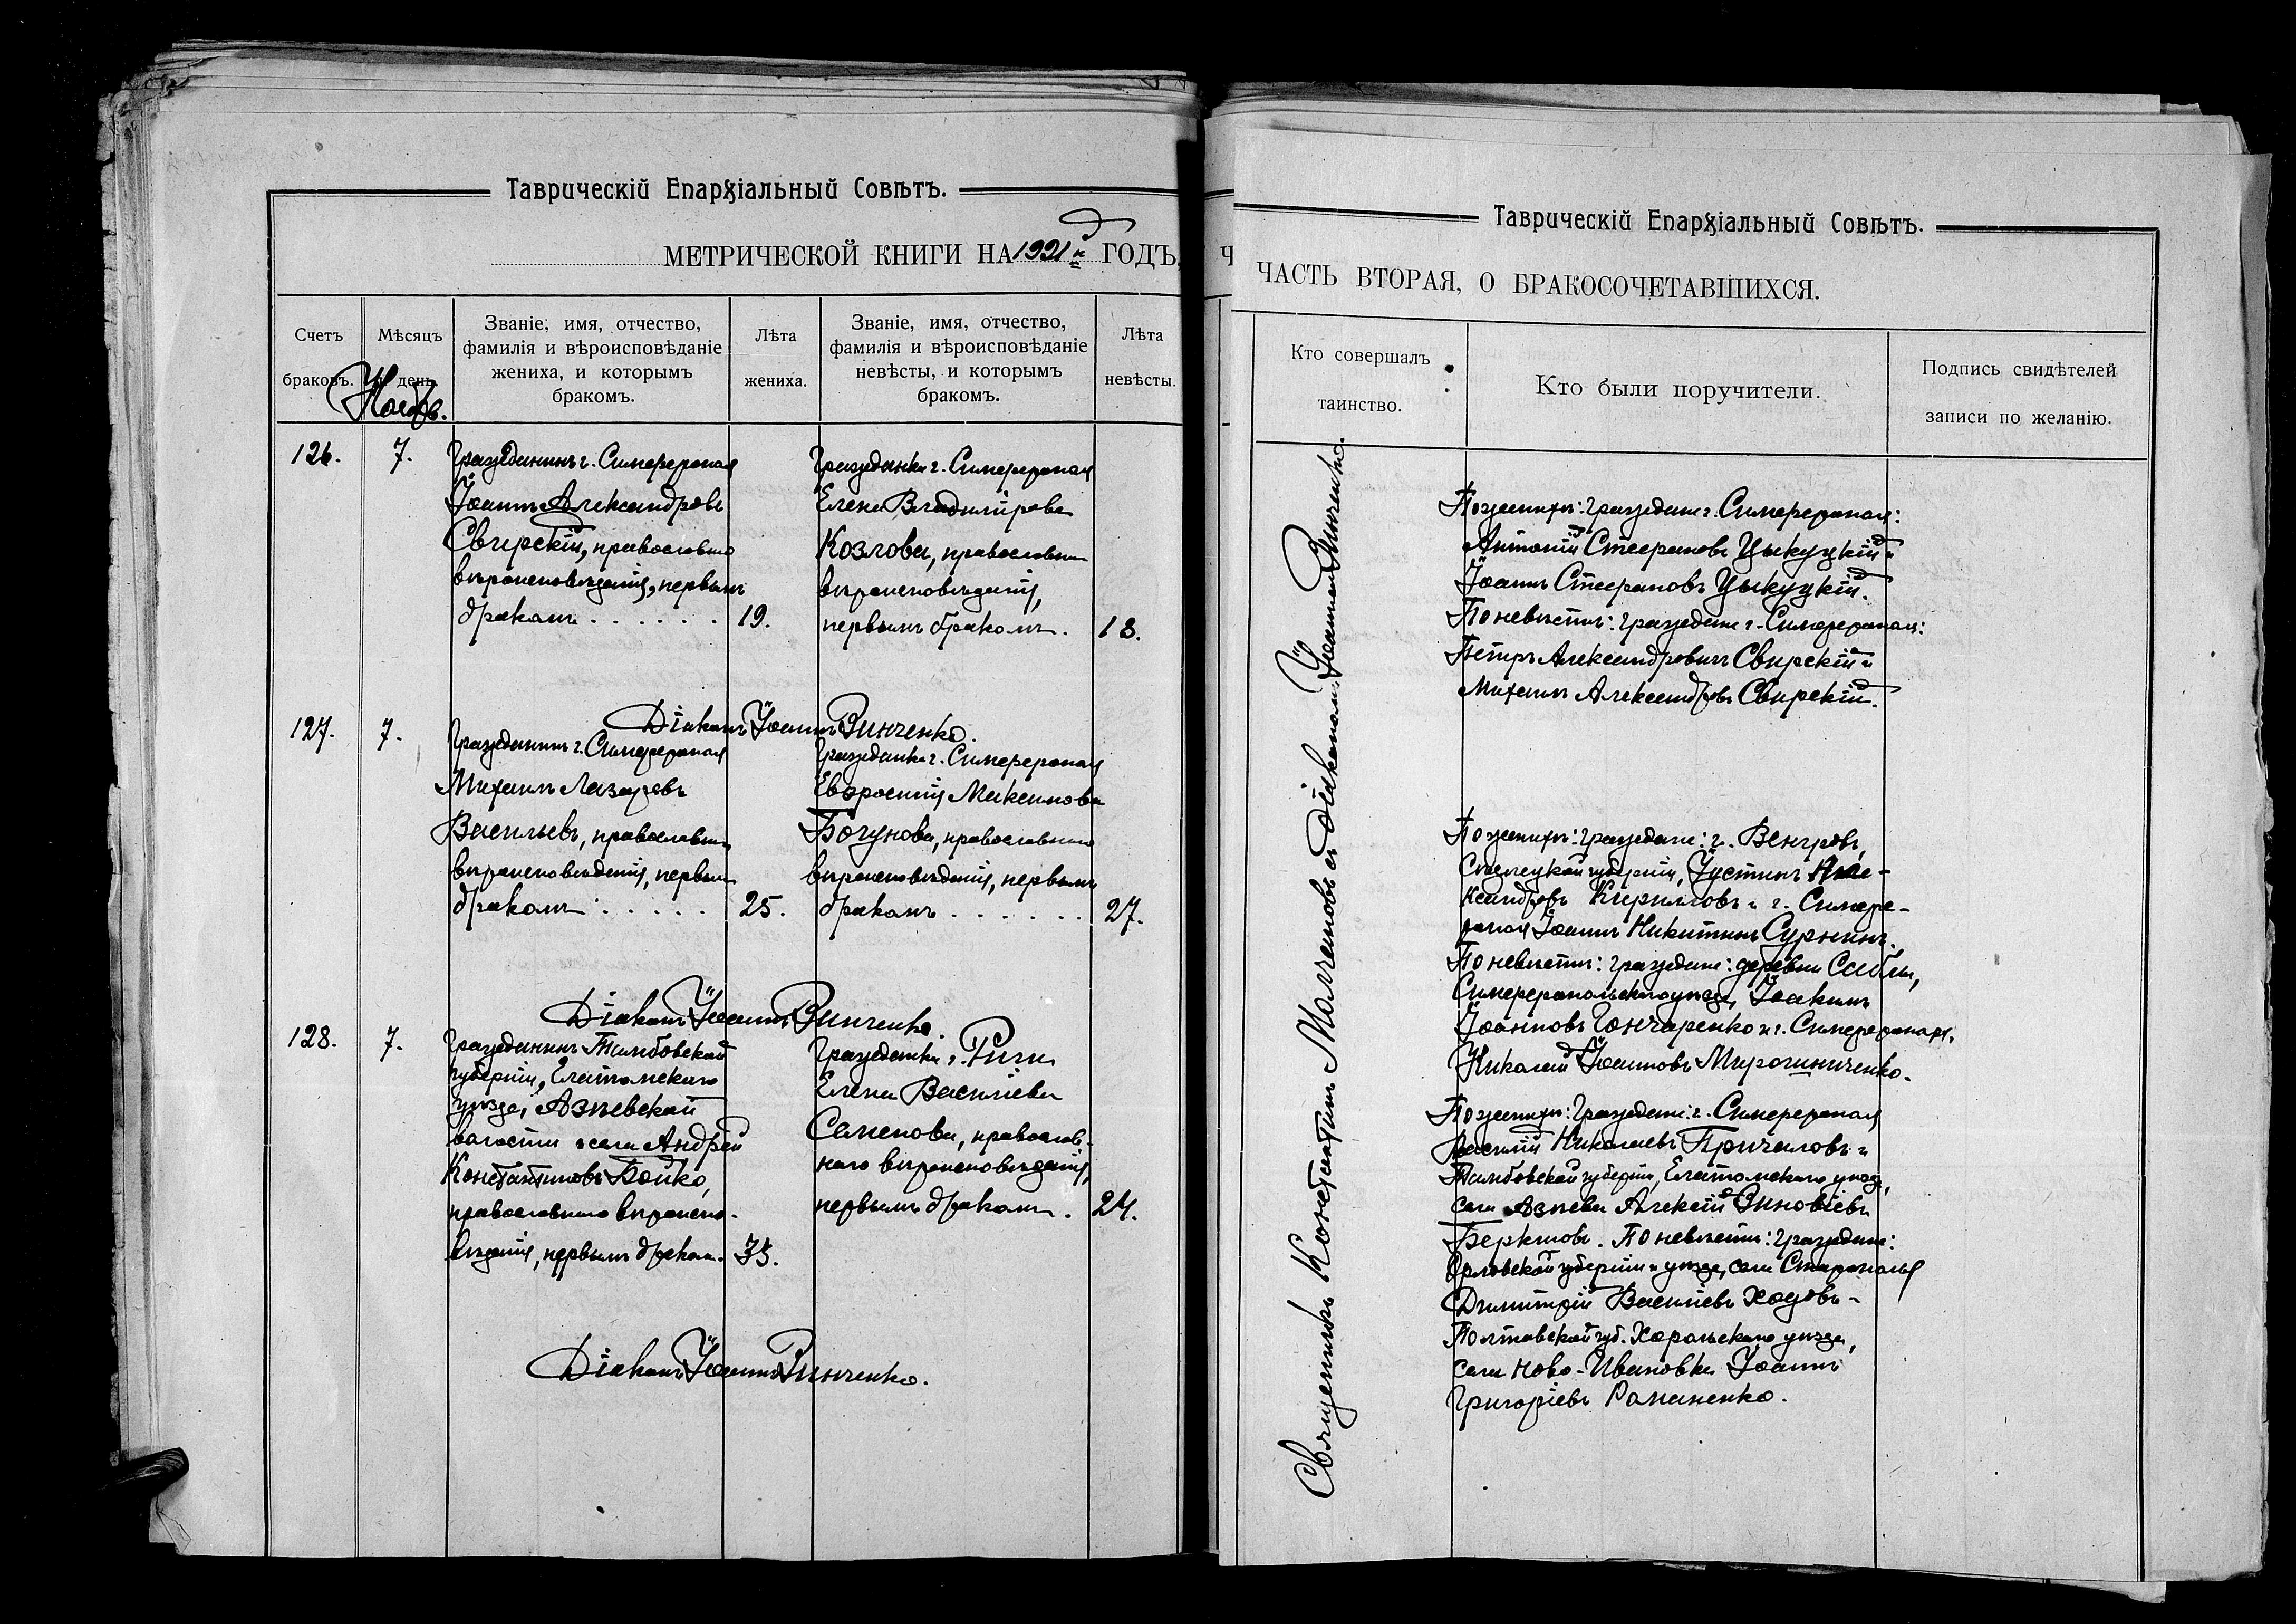 Таврическій Епархіальный Совѣтъ.
МЕТРИЧЕСКОЙ КНИГИ НА 1921й ГОДЪ,
Счетъ браковъ.
Мѣсяцъ и день.
Ноябрь.
Званіе, имя, отчество,
фамилія и вѣроисповѣданіе
жениха, и которымъ
бракомъ.
Лѣта
жениха.
Званіе, имя, отчество,
фамилія и вѣроисповѣданіе
невѣсты, и которымъ
бракомъ.
Лѣта
невѣсты.
126.
7.
Гражданинъ г. Симферополя
Іоаннъ Александровъ
Свирскій, православнаго
вѣроисповѣданія, первымъ
бракомъ . . . . . .
19.
Гражданка г. Симферополя
Елена Владимірова
Козлова, православнаго
вѣроисповѣданія,
первымъ бракомъ .
18.
Діаконъ Іоаннъ Зинченко.
127.
7.
Гражданинъ г. Симферополя
Михаилъ Лазаревъ
Васильевъ, православнаго
вѣроисповѣданія, первымъ
бракомъ . . . . .
25.
Гражданка г. Симферополя
Евфросинія Максимова
Богунова, православнаго
вѣроисповѣданія, первымъ
бракомъ . . . . . .
27.
Діаконъ Іоаннъ Зинченко.
128.
7.
Гражданинъ Тамбовской
губерніи, Елатомскаго
уѣзда, Азѣевской
волости и села Андрей
Константиновъ Бойко,
православнаго вѣроиспо-
вѣданія, первымъ бракомъ.
35.
Гражданка г. Риги
Елена Василіева
Семенова, православ-
наго вѣроисповѣданія,
первымъ бракомъ .
24.
Діаконъ Іоаннъ Зинченко.
Таврическій Епархіальный Совѣтъ.
ЧАСТЬ ВТОРАЯ, О БРАКОСОЧЕТАВШИХСЯ.
Кто совершалъ
таинство.
Кто были поручители.
Подпись свидѣтелей
записи по желанію.
Священникъ Константинъ Молчановъ съ діакономъ Іоанномъ Зинченко.
По женихѣ: граждане г. Симферополя:
Антоній Стефановъ Цыкуцкій и
Іоаннъ Стефановъ Цыкуцкій.
По невѣстѣ: граждане г. Симферополя:
Петръ Александровичъ Свирскій и
Михаилъ Александровъ Свирскій.
По женихѣ: граждане: г. Венгровъ,
губерніи, Іустинъ Але-
ксандровъ Кирилловъ и г. Симфе-
рополя Іоаннъ Никитинъ Сурнинъ.
По невѣстѣ: граждане: деревни Саблы,
Симферопольскаго уѣзда, Іоакимъ
Іоанновъ Гончаренко и г. Симферополя,
Николай Іоанновъ Мирошниченко.
По женихѣ: граждане: г. Симферополя
Василій Николаевъ Причаловъ и
Тамбовской губерніи, Елатомскаго уѣзда,
села Азѣева Алексій Зиновіевъ
Беркшовъ. По невѣстѣ: граждане:
Орловской губерніи и уѣзда, села Старополья
Димитрій Василіевъ Ходовъ -
Полтавской губ. Хорольскаго уѣзда,
села Ново-Ивановки Іоаннъ
Григоріевъ Романенко.